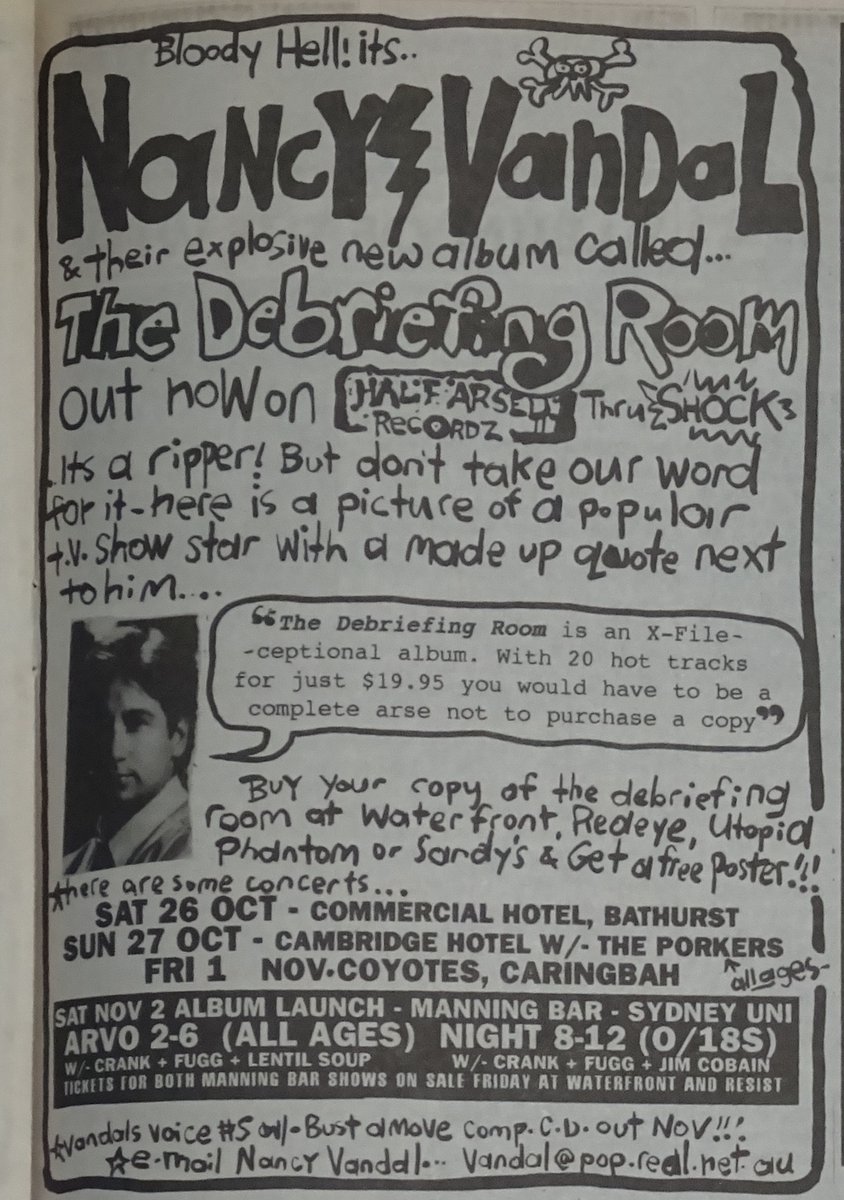 Bloody Hell! its..
NaNcY VanDaL
& their explosive new album called...
The Debriefing Room
out noW on HALF ARSED RECORDZ Thru SHOCK
Its a ripper! But don't take our word
for it-here is a picture of a popular
t.v. Show star with a made up quote next
to him....
“The Debriefing Room is an X-File-
-ceptional album. With 20 hot tracks
for just $19.95 you would have to be a
complete arse not to purchase a copy”
BUY Your copy of the debriefing
room at Waterfront, Redeye, Utopia
Phantom or Sandy's & Get a free poster!!!
there are some concerts...
SAT 26 OCT - COMMERCIAL HOTEL, BATHURST
SUN 27 OCT - CAMBRIDGE HOTEL W/- THE PORKERS
FRI 1 NOV·COYOTES, CARINGBAH
all ages-
SAT NOV 2 ALBUM LAUNCH - MANNING BAR - SYDNEY UNI
ARVO 2-6 (ALL AGES) NIGHT 8-12 (O/18S)
W/- CRANK + FUGG + LENTIL SOUP W/- CRANK + FUGG + JIM COBAIN
TICKETS FOR BOTH MANNING BAR SHOWS ON SALE FRIDAY AT WATERFRONT AND RESIST
☆Vandals Voice #5 w/- Bust a Move comp. C.D. out NOV!!!
☆e-mail Nancy Vandal... Vandal@pop.real.net.au